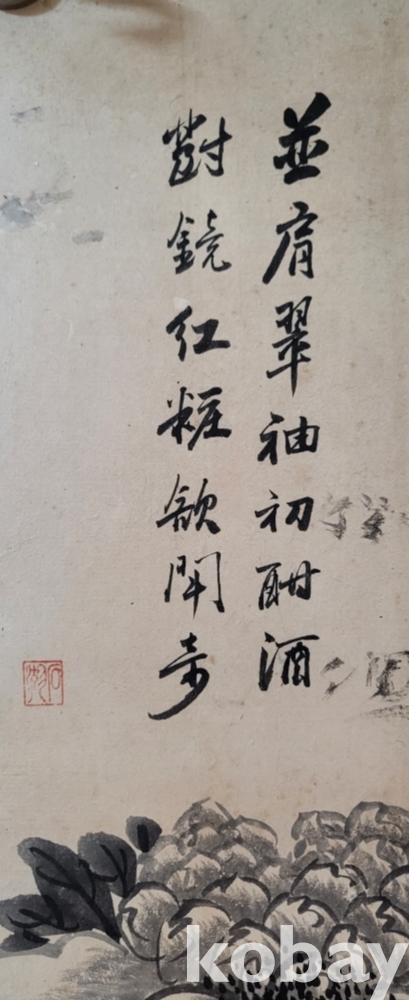 並肩翠袖初酣酒
對鏡紅粧欲鬪奇
kobay